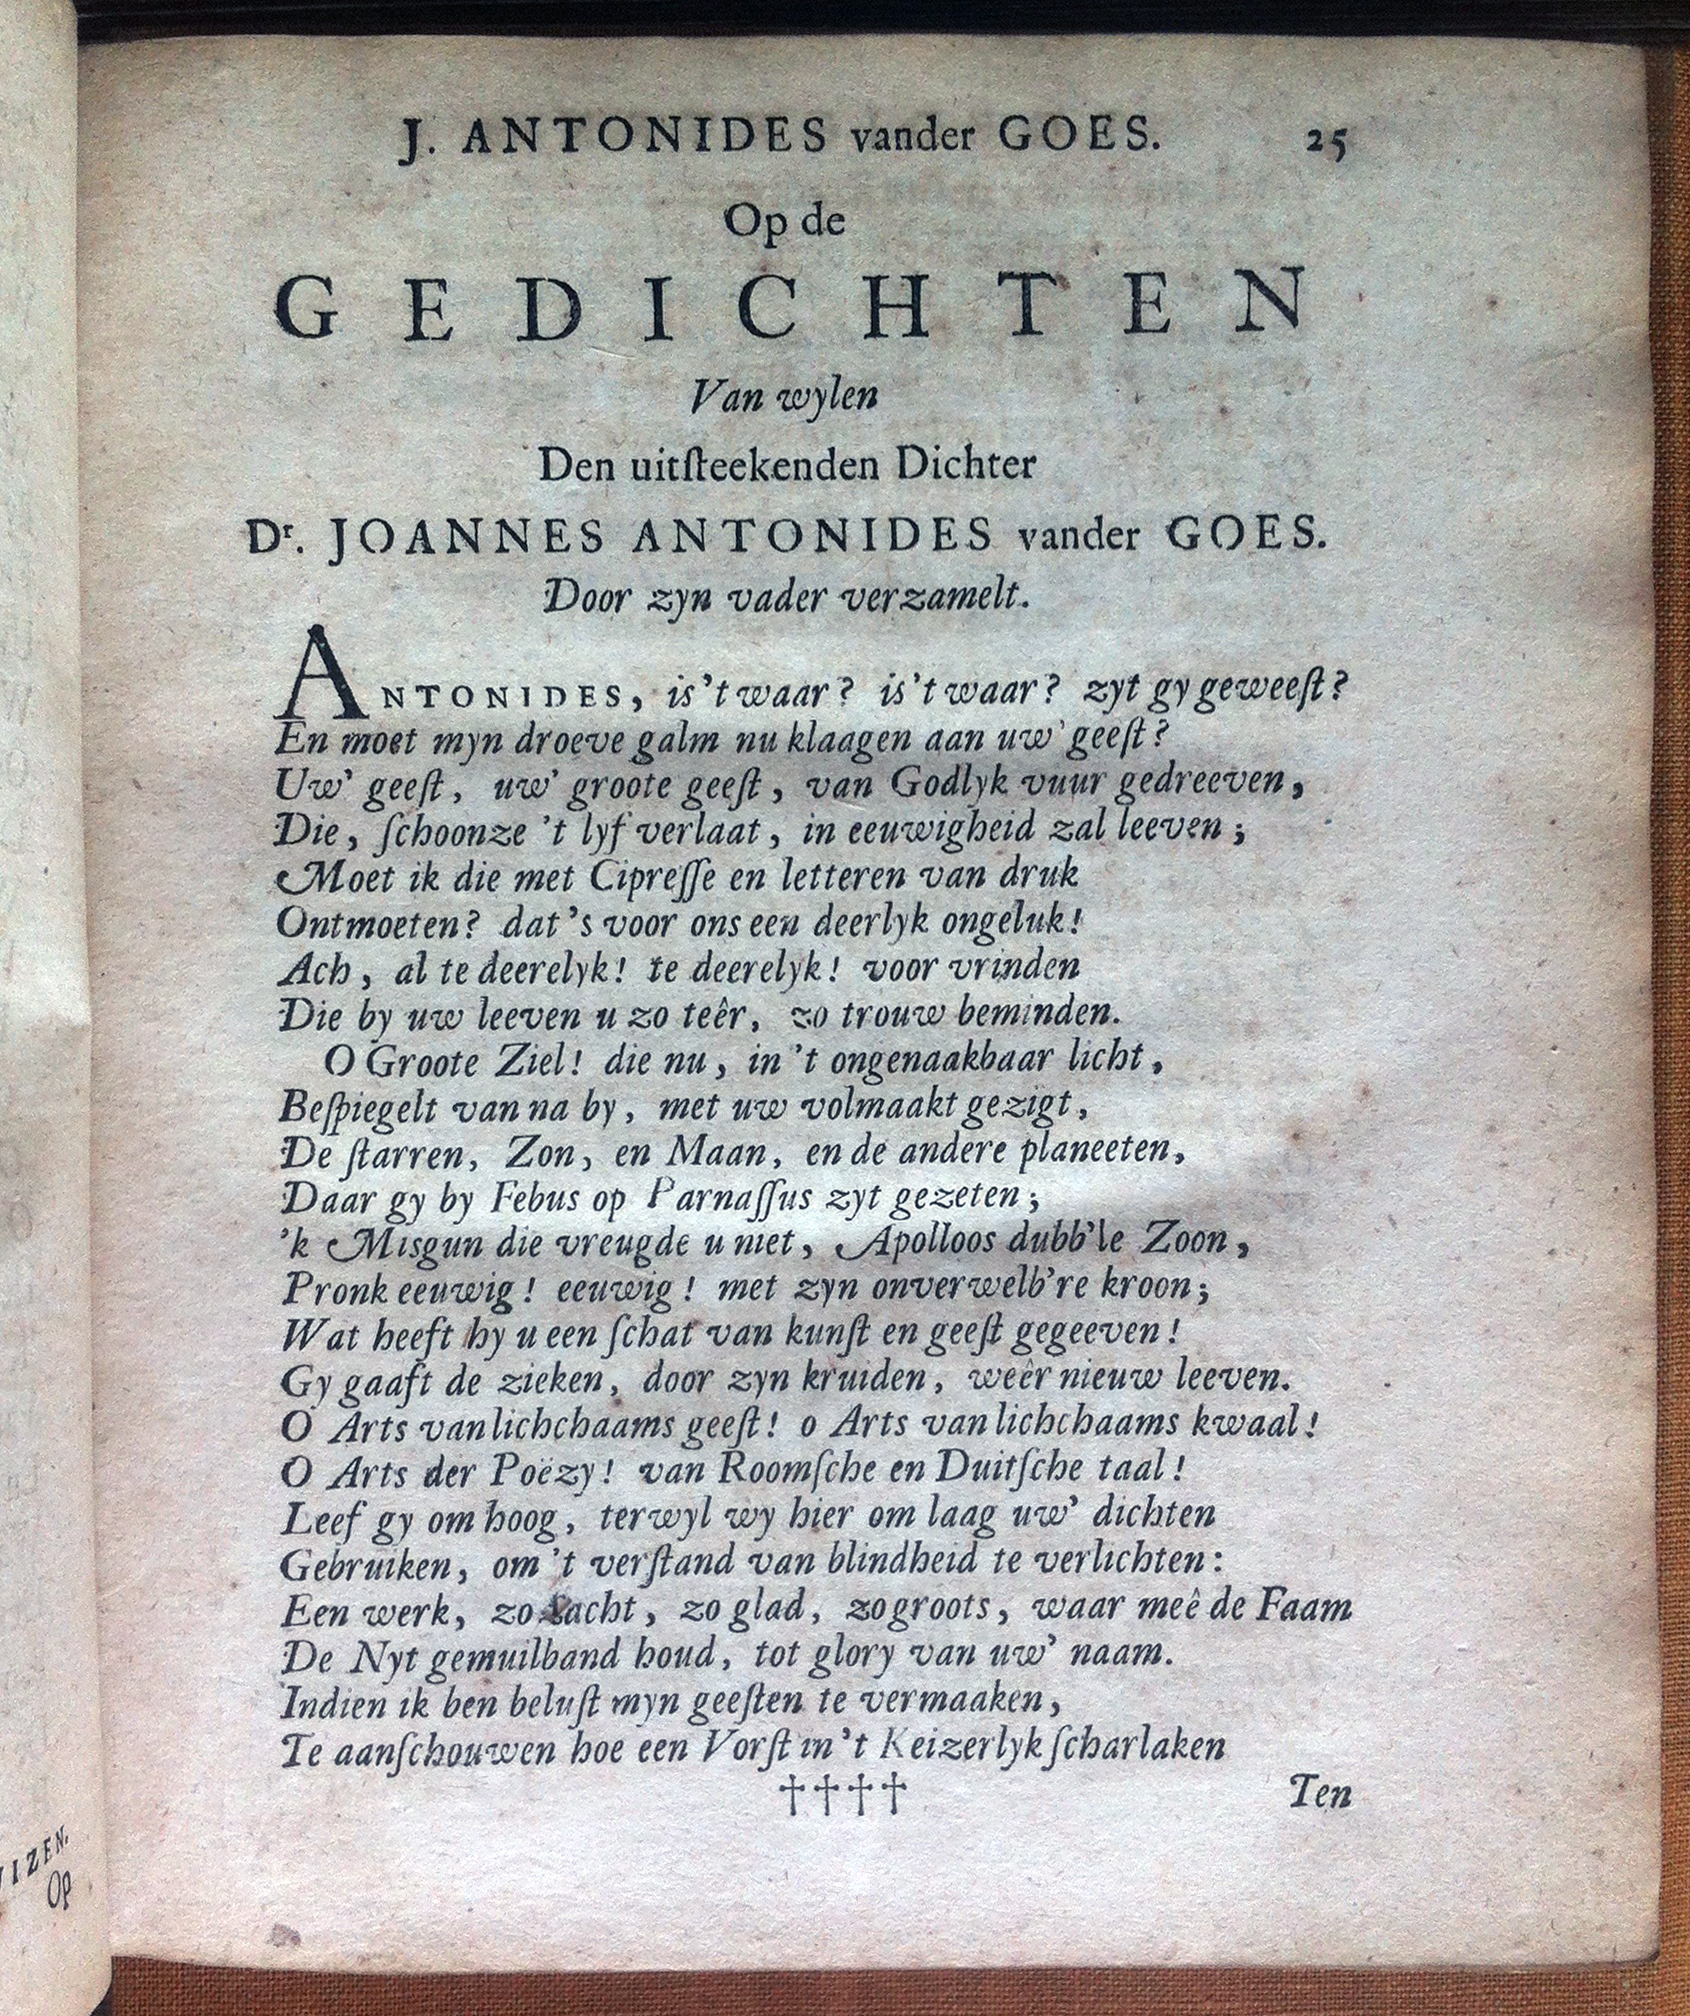 J. ANTONIDES vander GOES. 25
Op de
GEDICHTEN
Van wylen
Den uitſteekenden Dichter
Dr. JOANNES ANTONIDES vander GOES.
Door zyn vader verzamelt.
ANTONIDES, is't waar? is't waar? zyt gy geweeſt?
En moet myn droeve galm nu klaagen aan uw' geeſt?
Uw' geeſt, uw' groote geeſt, van Godlyk vuur gedreeven,
Die, ſchoonze 't lyf verlaat, in eeuwigheid zal leeven;
Moet ik die met Cipreſſe en letteren van druk
Ontmoeten? dat's voor ons een deerlyk ongeluk!
Ach, al te deerelyk! te deerelyk! voor vrinden
Die by uw leeven u zo teêr, zo trouw beminden.
O Groote Ziel! die nu, in 't ongenaakbaar licht,
Beſpiegelt van na by, met uw volmaakt gezigt,
De ſtarren, Zon, en Maan, en de andere planeeten,
Daar gy by Febus op Parnaſſus zyt gezeten;
'k Misgun die vreugde u niet, Apolloos dubb'le Zoon,
Pronk eeuwig! eeuwig! met zyn onverwelb're kroon;
Wat heeft hy u een ſchat van kunſt en geeſt gegeeven!
Gy gaaft de zieken, door zyn kruiden, weêr nieuw leeven.
O Arts van lichchaams geeſt! o Arts van lichchaams kwaal!
O Arts der Poëzy! van Roomſche en Duitſche taal!
Leef gy om hoog, terwyl wy hier om laag uw' dichten
Gebruiken, om 't verſtand van blindheid te verlichten:
Een werk, zo zacht, zo glad, zo groots, waar meê de Faam
De Nyt gemuilband houd, tot glory van uw' naam.
Indien ik ben beluſt myn geeſten te vermaaken,
Te aanſchouwen hoe een Vorſt in 't Keizerlyk ſcharlaken
†††† Ten
IZEN.
Op